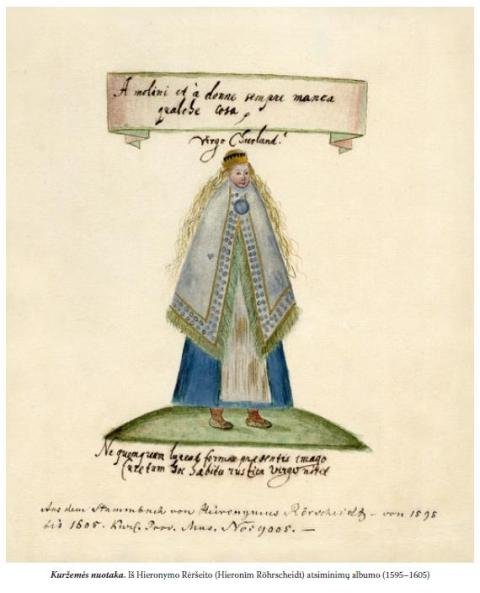 A molini et à donne sempre manca
qualche cosa,
virgo Churland.
Ne quemquam forma præsentis imago
hoc habitu rustica virgo notet
Aus dem Stammbuch von Hieronymus Rörscheidt – von 1595
bis 1605. Kurl. Prov. Mus. No: 9005. —
Kuržemės nuotaka. Iš Hieronymo Rėršeito (Hieronīm Röhrscheidt) atsiminimų albumo (1595–1605)